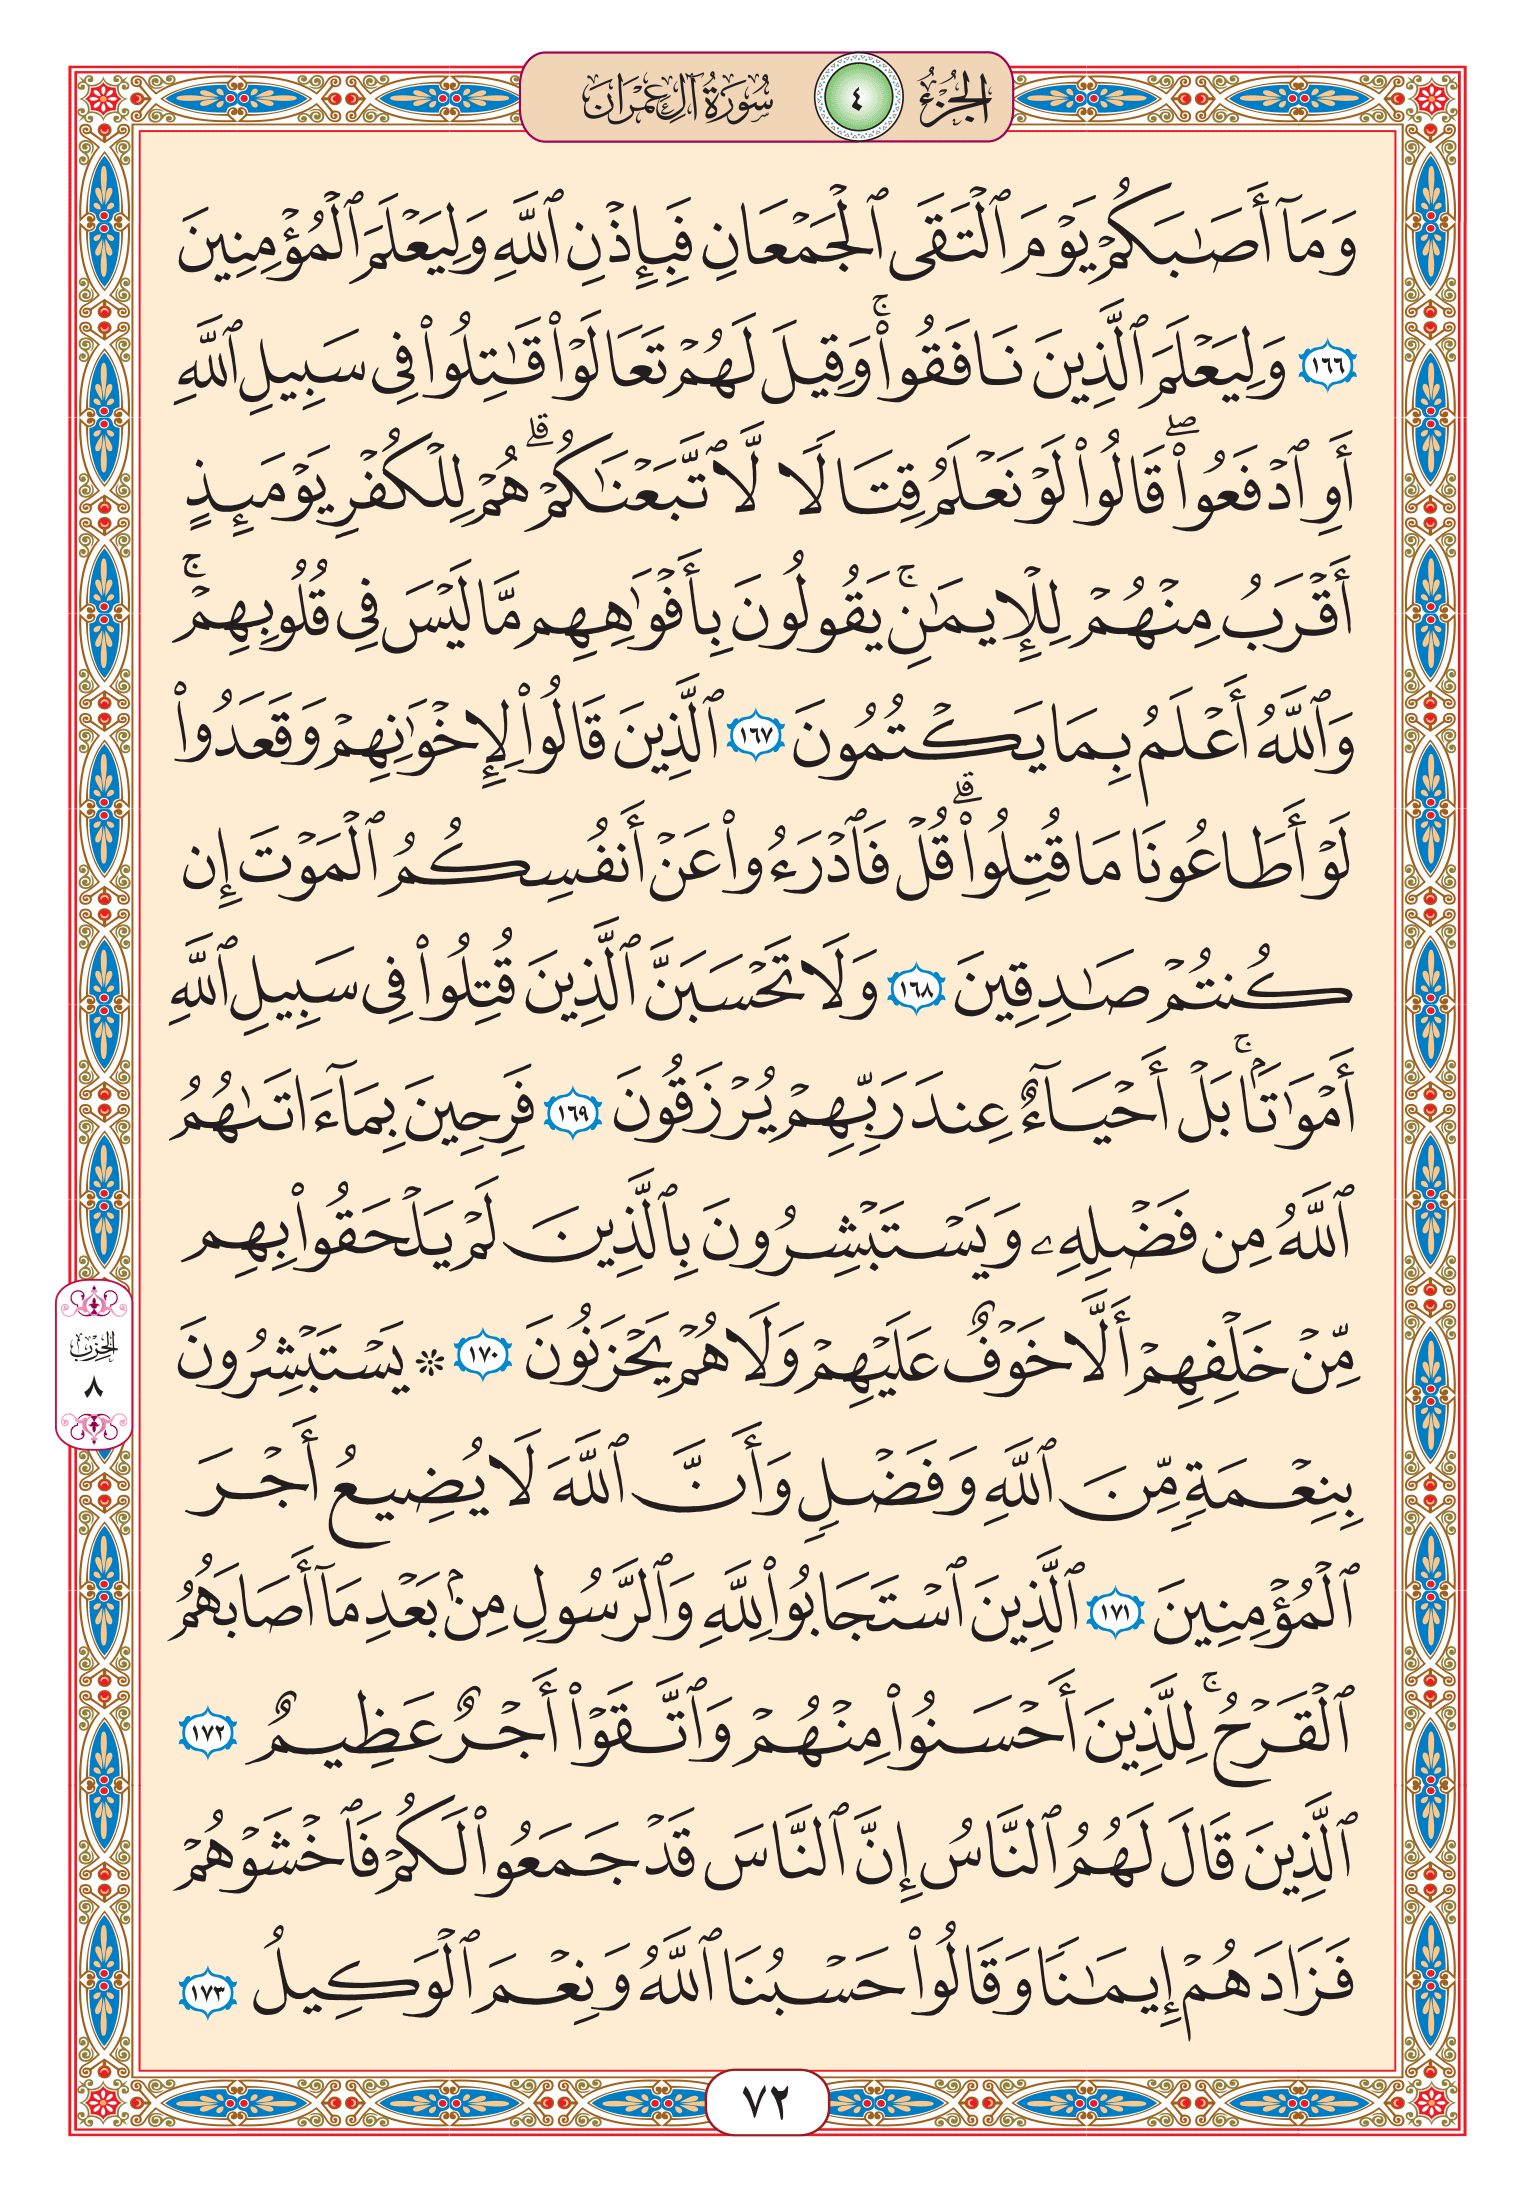 الجُزْءُ ٤ سُورَةُ آلِ عِمْرَانَ
وَمَآ أَصَٰبَكُمْ يَوْمَ ٱلْتَقَى ٱلْجَمْعَانِ فَبِإِذْنِ ٱللَّهِ وَلِيَعْلَمَ ٱلْمُؤْمِنِينَ
١٦٦ وَلِيَعْلَمَ ٱلَّذِينَ نَافَقُوا۟ ۚ وَقِيلَ لَهُمْ تَعَالَوْا۟ قَٰتِلُوا۟ فِى سَبِيلِ ٱللَّهِ
أَوِ ٱدْفَعُوا۟ ۖ قَالُوا۟ لَوْ نَعْلَمُ قِتَالًا لَّٱتَّبَعْنَٰكُمْ ۗ هُمْ لِلْكُفْرِ يَوْمَئِذٍ
أَقْرَبُ مِنْهُمْ لِلْإِيمَٰنِ ۚ يَقُولُونَ بِأَفْوَٰهِهِم مَّا لَيْسَ فِى قُلُوبِهِمْ ۚ
وَٱللَّهُ أَعْلَمُ بِمَا يَكْتُمُونَ ١٦٧ ٱلَّذِينَ قَالُوا۟ لِإِخْوَٰنِهِمْ وَقَعَدُوا۟
لَوْ أَطَاعُونَا مَا قُتِلُوا۟ ۗ قُلْ فَٱدْرَءُوا۟ عَنْ أَنفُسِكُمُ ٱلْمَوْتَ إِن
كُنتُمْ صَٰدِقِينَ ١٦٨ وَلَا تَحْسَبَنَّ ٱلَّذِينَ قُتِلُوا۟ فِى سَبِيلِ ٱللَّهِ
أَمْوَٰتًۢا ۚ بَلْ أَحْيَآءٌ عِندَ رَبِّهِمْ يُرْزَقُونَ ١٦٩ فَرِحِينَ بِمَآ ءَاتَىٰهُمُ
ٱللَّهُ مِن فَضْلِهِۦ وَيَسْتَبْشِرُونَ بِٱلَّذِينَ لَمْ يَلْحَقُوا۟ بِهِم
مِّنْ خَلْفِهِمْ أَلَّا خَوْفٌ عَلَيْهِمْ وَلَا هُمْ يَحْزَنُونَ ١٧٠ * يَسْتَبْشِرُونَ
الحِزْب
٨
بِنِعْمَةٍ مِّنَ ٱللَّهِ وَفَضْلٍ وَأَنَّ ٱللَّهَ لَا يُضِيعُ أَجْرَ
ٱلْمُؤْمِنِينَ ١٧١ ٱلَّذِينَ ٱسْتَجَابُوا۟ لِلَّهِ وَٱلرَّسُولِ مِنۢ بَعْدِ مَآ أَصَابَهُمُ
ٱلْقَرْحُ ۚ لِلَّذِينَ أَحْسَنُوا۟ مِنْهُمْ وَٱتَّقَوْا۟ أَجْرٌ عَظِيمٌ ١٧٢
ٱلَّذِينَ قَالَ لَهُمُ ٱلنَّاسُ إِنَّ ٱلنَّاسَ قَدْ جَمَعُوا۟ لَكُمْ فَٱخْشَوْهُمْ
فَزَادَهُمْ إِيمَٰنًا وَقَالُوا۟ حَسْبُنَا ٱللَّهُ وَنِعْمَ ٱلْوَكِيلُ ١٧٣
٧٢